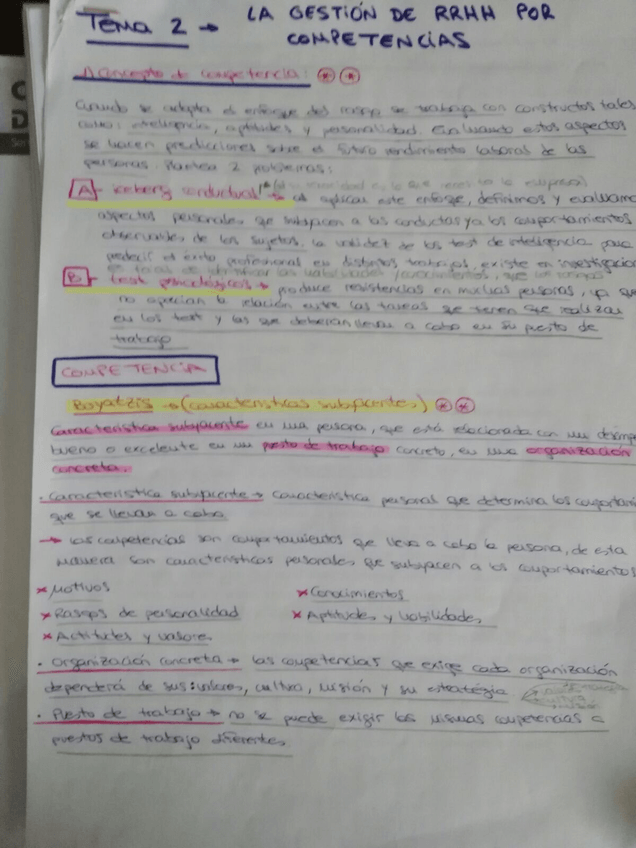 Tema 2 → LA GESTIÓN DE RRHH POR
COMPETENCIAS
1) Concepto de competencia:
Cuando se adopta el enfoque del rasgo se trabaja con constructos tales
como: inteligencia, aptitudes y personalidad. Evaluando estos aspectos
se hacen predicciones sobre el futuro rendimiento laboral de las
personas. Plantea 2 problemas:
A - iceberg conductual → al aplicar este enfoque, definimos y evaluamos
aspectos personales que subyacen a las conductas y a los comportamientos
observables de los sujetos, la validez de los test de inteligencia para
predecir el éxito profesional en distintos trabajos, existe en investigacion
B - test psicológicos → produce resistencias en muchas personas, ya que
no aprecian la relación entre las tareas que tienen que realizar
en los test y las que deberan llevar a cabo en su puesto de
trabajo
COMPETENCIA
Boyatzis → (características subyacentes)
Característica subyacente en una persona, que está relacionada con un desempe
bueno o excelente en un puesto de trabajo concreto, en una organización
concreta.
· Característica subyacente → Característica personal que determina los comportami
que se llevan a cabo
→ Las competencias son comportamientos que lleva a cabo la persona, de esta
manera son características personales que subyacen a los comportamientos
× Motivos × Conocimientos
× Rasgos de personalidad × Aptitudes y habilidades
× Actitudes y valores
· Organización concreta → las competencias que exige cada organización
dependerá de sus: valores, cultura, misión y su estratégia
· Puesto de trabajo → no se puede exigir las mismas competencias a
puestos de trabajo diferentes.